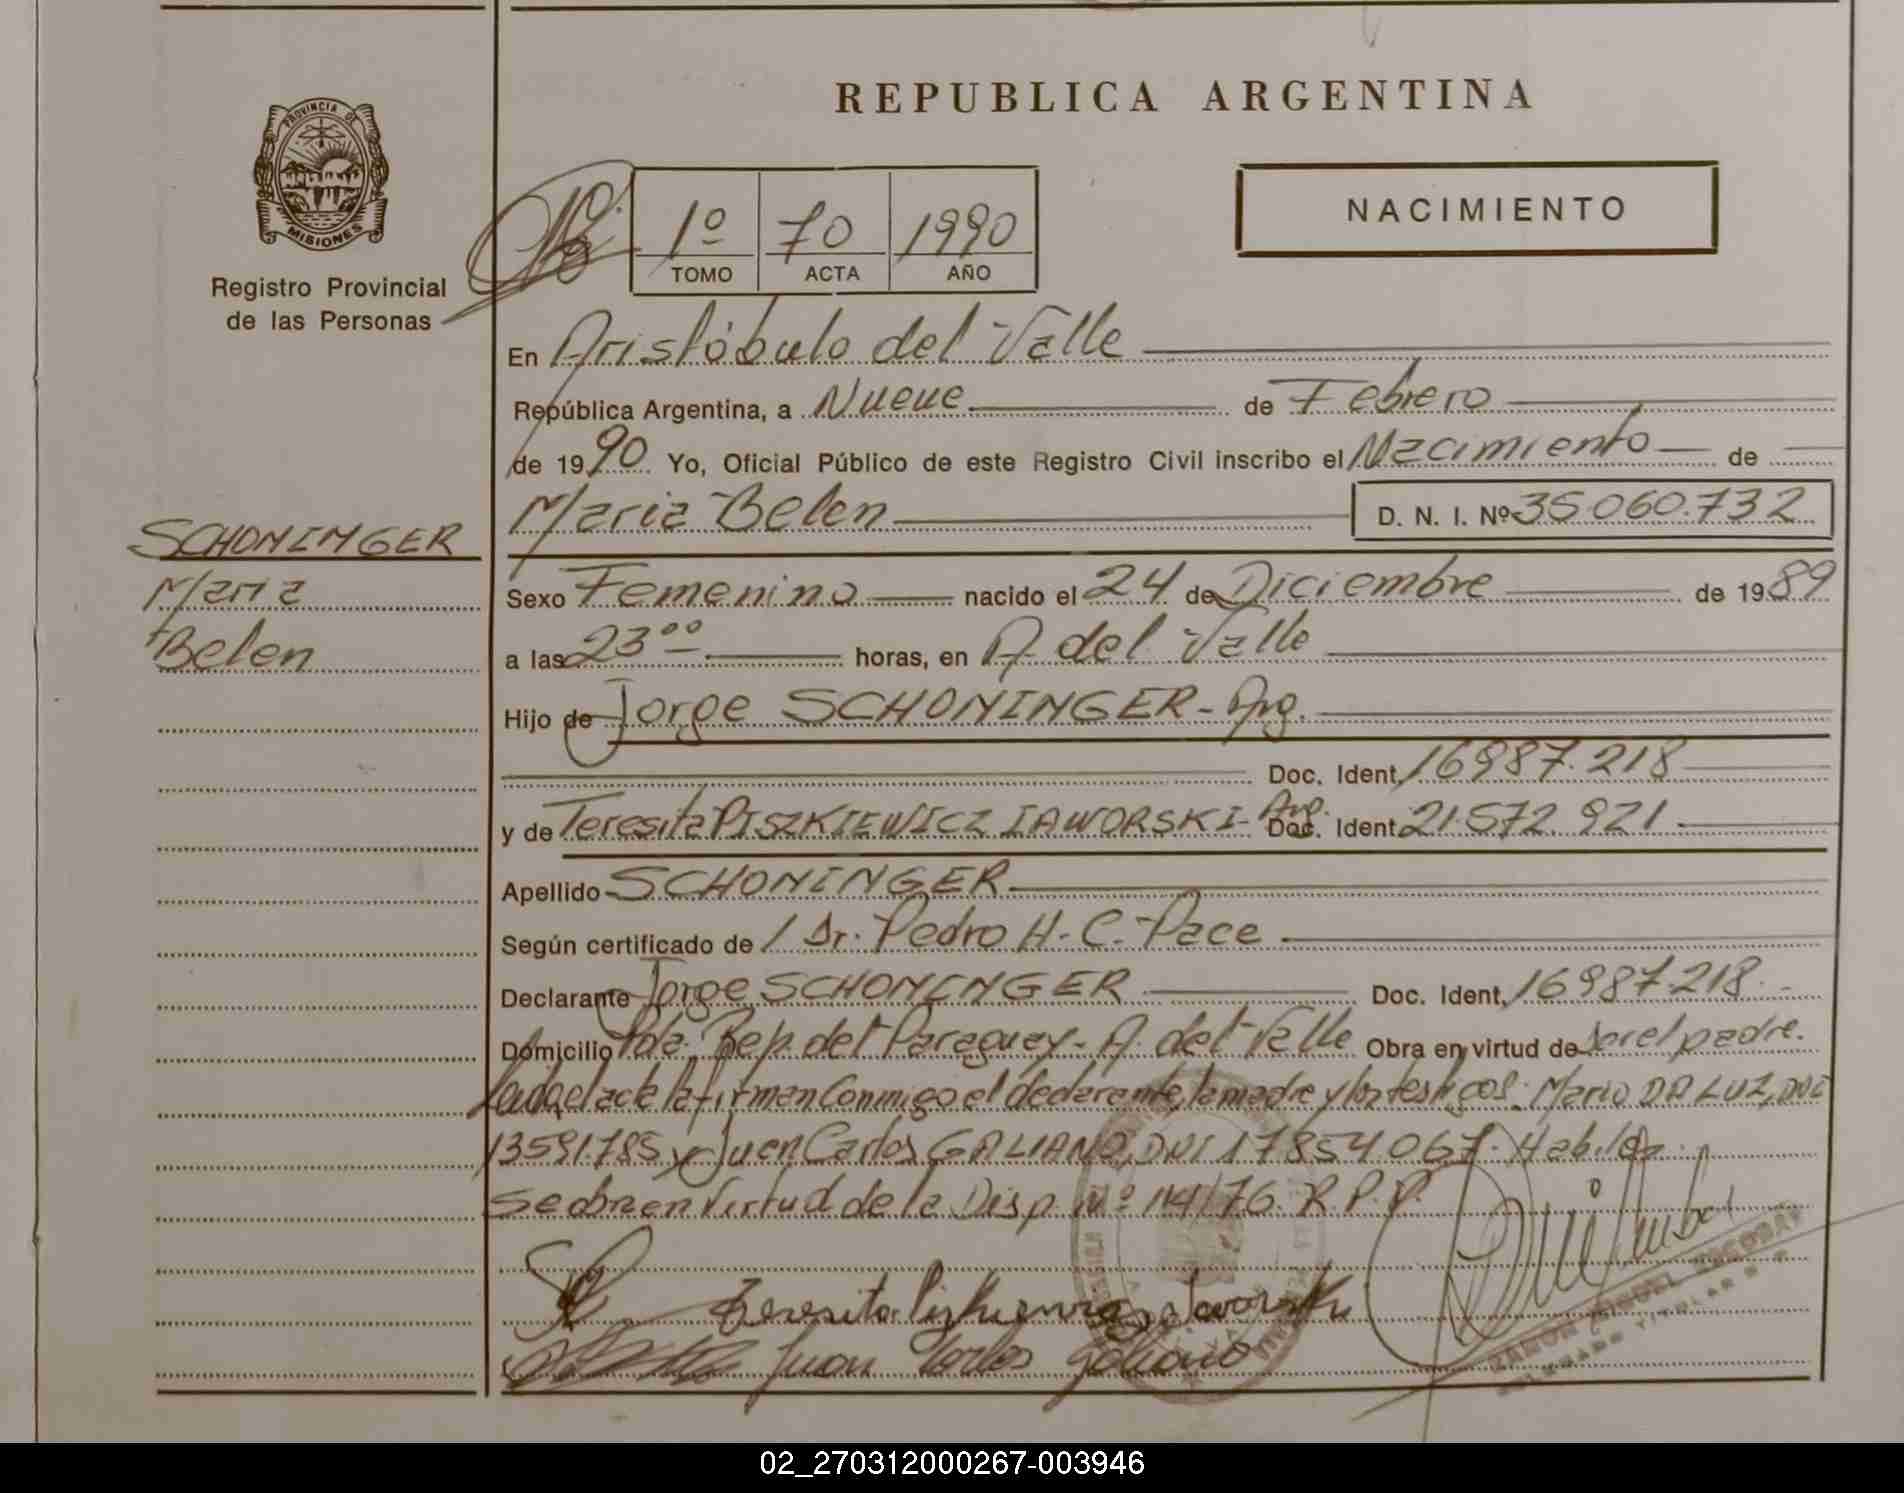 REPUBLICA ARGENTINA
PROVINCIA DE
MISIONES
Registro Provincial
de las Personas
1º 70 1990
TOMO ACTA AÑO
NACIMIENTO
En Aristóbulo del Valle
República Argentina, a Nueve de Febrero
de 1990 Yo, Oficial Público de este Registro Civil inscribo el Nacimiento de
Maria Belen D. N. I. Nº 35.060.732
SCHONINGER
Maria
Belen
Sexo Femenino nacido el 24 de Diciembre de 1989
a las 23ºº horas, en A. del Valle
Hijo de Jorge SCHONINGER - Arg.
Doc. Ident. 16987.218
y de Teresita PISZKIEWICZ IAWORSKI - Arg. Doc. Ident. 21.572.921
Apellido SCHONINGER
Según certificado de / Dr. Pedro H. C. Pace
Declarante Jorge SCHONINGER Doc. Ident. 16987.218
Domicilio Pda. Rep. del Paraguay - A. del Valle Obra en virtud de ser el padre.
Leida el acta la firman conmigo el declarante, la madre y los testigos: Mario DA LUZ, DNI
13591.785 y Juan Carlos GALIANO, DNI 17854.067. Habiles
Se obra en virtud de la Disp. Nº 114/76. R.P.P.
Juan Carlos Galiano
02_270312000267-003946